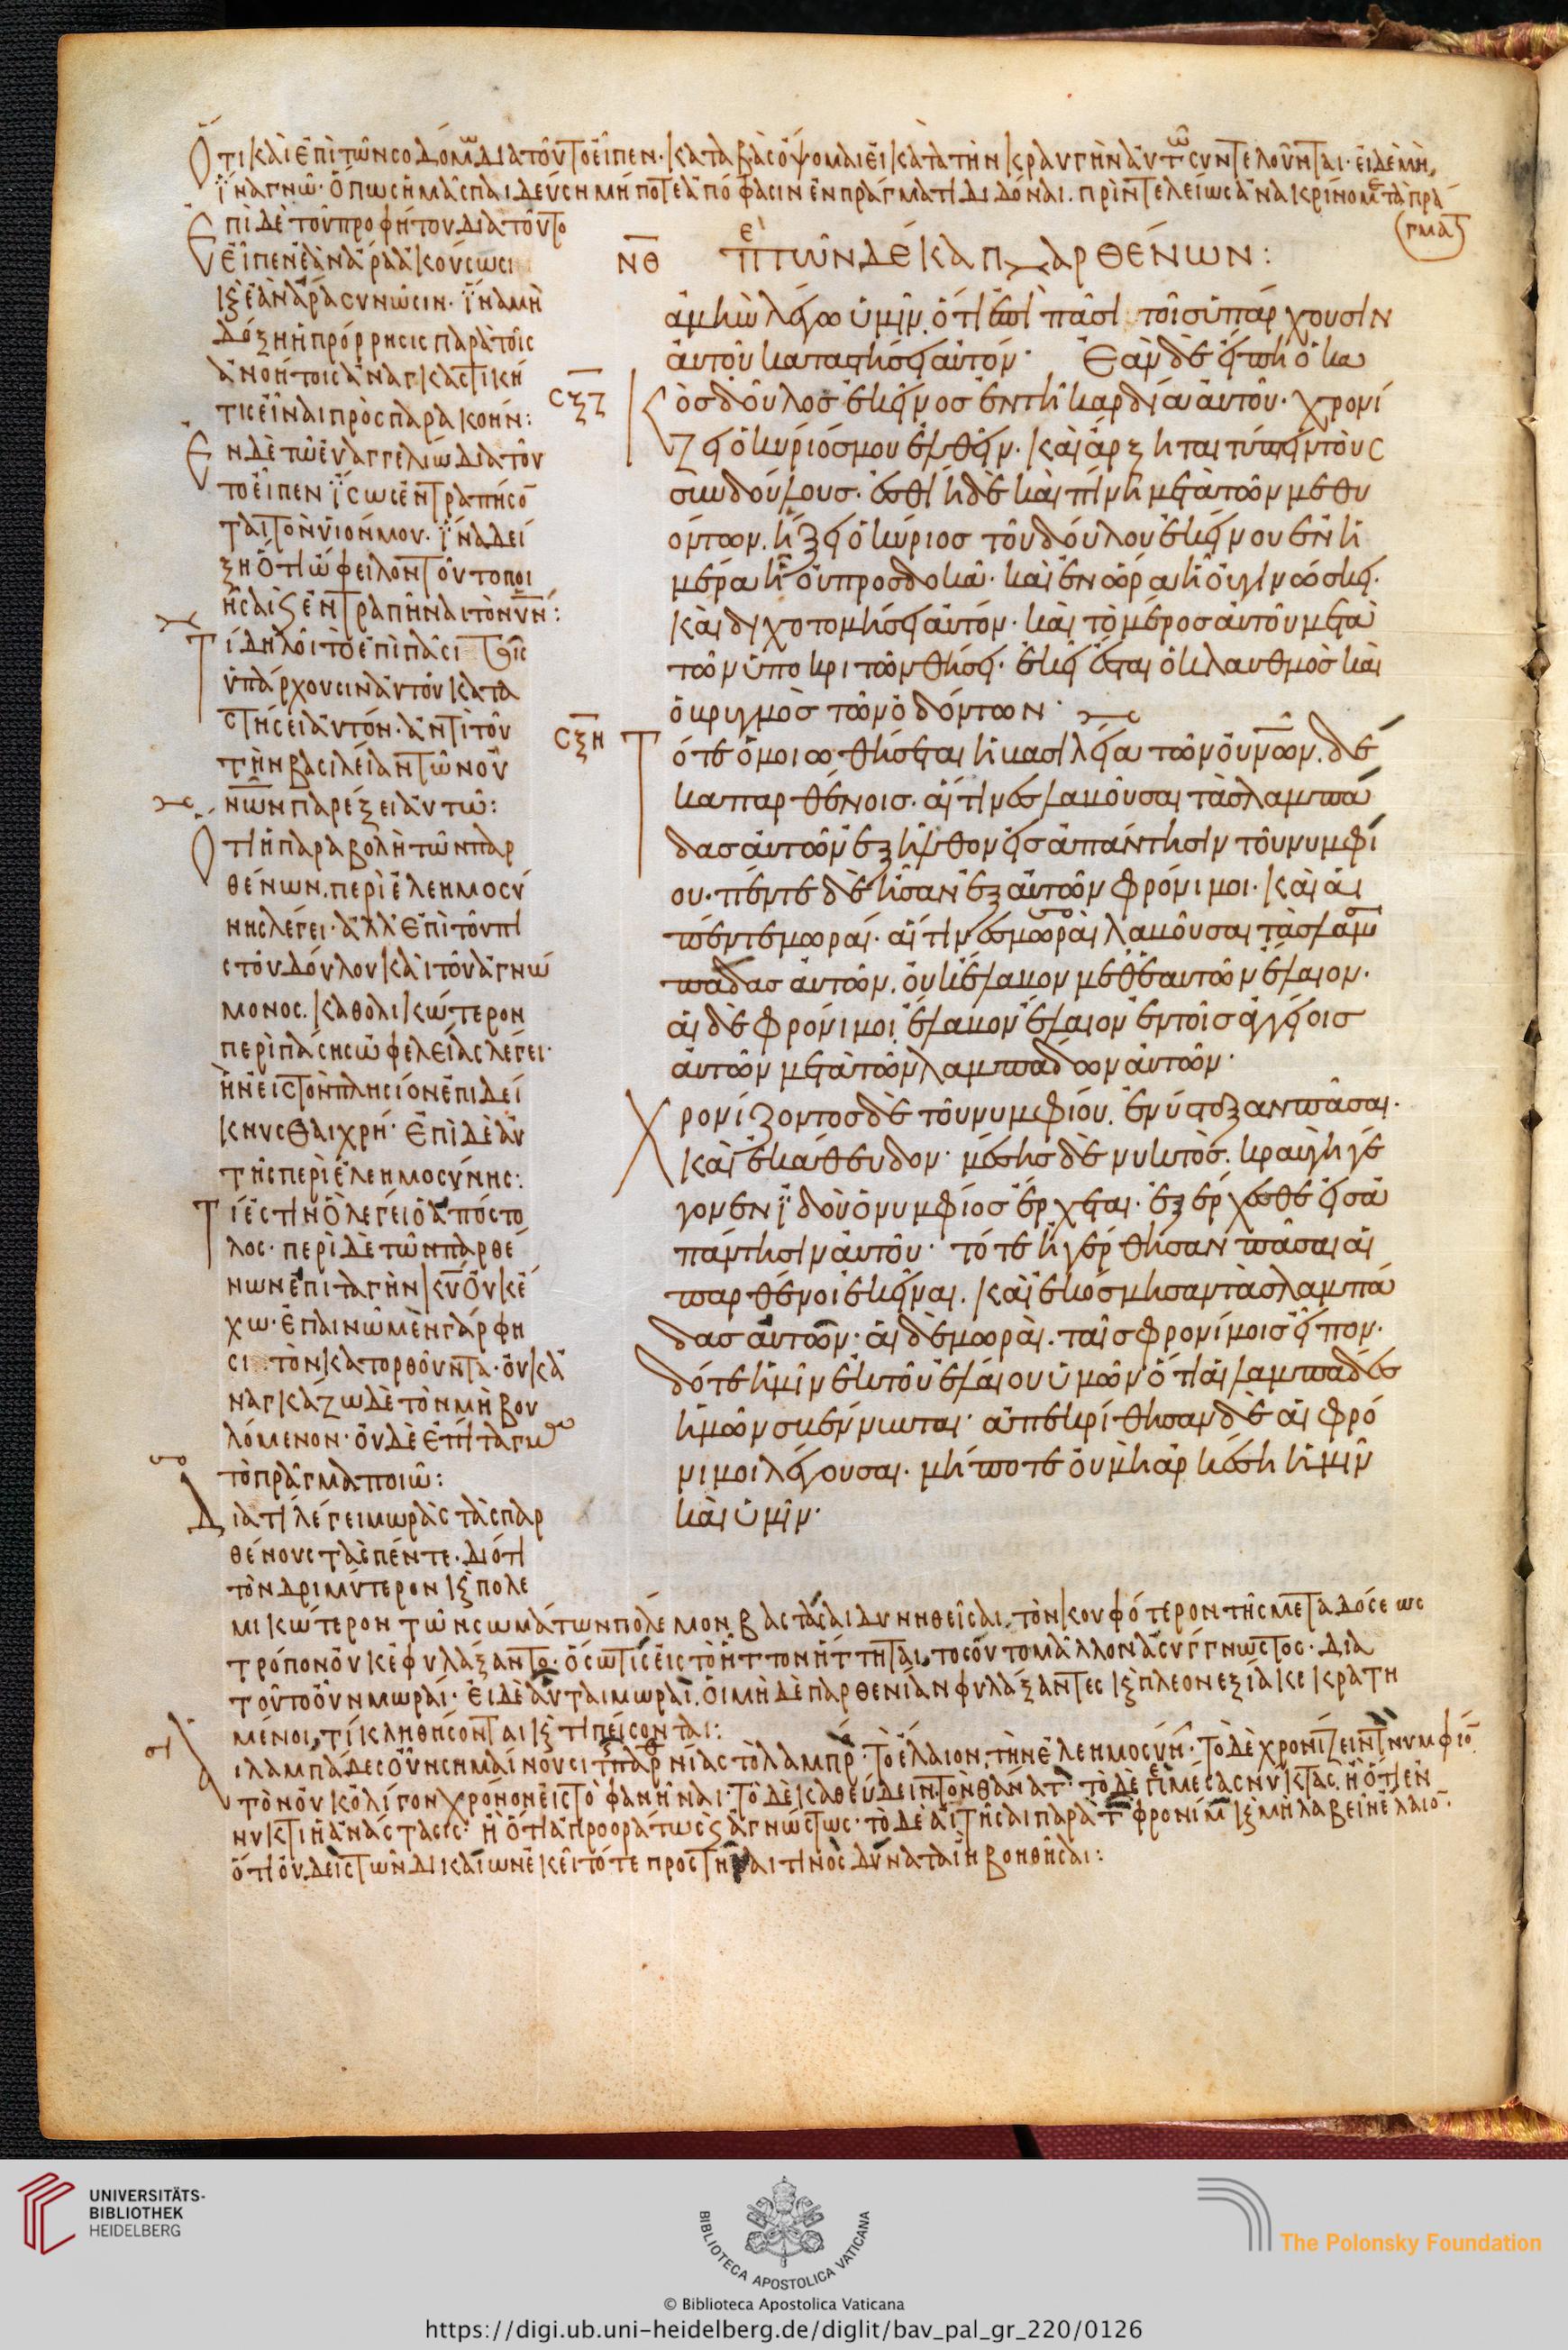 Ὅτι καὶ ἐπὶ τῶν σοδόμων διατοῦτο εἶπεν· καταβὰς ὄψομαι εἰ κατὰ τὴν κραυγὴν αὐτῶν συντελοῦνται· εἰ δὲ μὴ,
ἵνα γνῶ· ὅπως ἡμᾶς παιδεύση μήποτε ἀπόφασιν ἐν πράγματι διδόναι. πρὶν τελείως ἀνακρίνομεν τὰ πρά
γματ
Ἐπὶ δὲ τοῦ προφήτου διατοῦτο
εἶπεν ἐὰν ἄρα ἀκούσωσι
κ ἐὰν ἄρα συνῶσιν· ἵνα μὴ
δόξη ἡ πρόρρησις παρὰ τοῖς
ἀνοήτοις ἀναγκαστική
τις εἶναι πρὸς παρακοήν:
Ἐν δὲ τῶ εὐαγγελίω διατοῦ
το εἶπεν ἴσως ἐντραπήσο
ται τὸν υἱόν μου· ἵνα δεί
ξη ὅτι ὤφειλον τοῦτο ποι
ῆσαι κ ἐντραπῆναι τὸν υν:
Τί δηλοῖ τὸ ἐπὶ πᾶσι τοῖς
ὑπάρχουσιν αὐτοῦ κατα
στήσει αὐτόν· ἀντὶ τοῦ
τὴν βασιλείαν τῶν οὐ
νῶν παρέξει αὐτῶ:
Ὅτι ἡ παραβολὴ τῶν παρ
θένων. περὶ ἐλεημοσύ
νης λέγει· ἀλλ ἐπὶ τοῦ πι
στοῦ δούλου καὶ τοῦ ἀγνώ
μονος. καθολικώτερον
περὶ πάσης ὠφελείας λέγει·
ἣν εἰς τὸν πλησίον ἐπιδεί
κνυσθαι χρή· Ἐπὶ δὲ αὐ
τῆς περὶ ἐλεημοσύνης:
Τί ἐστιν ὃ λέγει ὁ ἀπόστο
λος· περὶ δὲ τῶν παρθέ
νων ἐπιταγὴν κυ οὐκ ἔ
χω· Ἐπαινῶ μὲν γάρ φη
σι τὸν κατορθοῦντα· οὐκ ἀ
ναγκάζω δὲ τὸν μὴ βου
λόμενον· οὐδὲ ἐπίταγμα
τὸ πρᾶγμα ποιῶ:
Διατί λέγει μωρὰς τὰς παρ
θένους τὰς πέντε· διότι
τὸν δριμύτερον κ πολε
μικώτερον τῶν σωμάτων πόλεμον βαστάσαι δυνηθεῖσαι, τὸν κουφότερον τῆς μεταδόσεως
τρόπον οὐκ ἐφυλάξαντο· ὅσω τις εἰς τὸ ἧττον ἥττηται, τοσοῦτο μᾶλλον ἀσύγγνωστος· Δια
τοῦτο οὖν μωραί· Εἰ δὲ αὗται μωραὶ. οἱ μὴ δὲ παρθενίαν φυλάξαντες κ πλεονεξία κεκρατη
μένοι, τί κληθήσονται κ τί πείσονται:
Αἱ λαμπάδες οὖν σημαίνουσι τῆς παρθνίας τὸ λαμπρό· Τὸ ἔλαιον, τὴν ἐλεημοσύνη· Τὸ δὲ χρονίζειν τὸν νυμφίο
τὸν οὐκ ὀλίγον χρόνον εἰς τὸ φανῆναι· Τὸ δὲ καθεύδειν τὸν θάνατ· τὸ δὲ μέσας νύκτας, ἢ ὅτι ἐν
νυκτὶ ἡ ἀνάστασις· ἢ ὅτι ἀπροοράτως κ ἀγνώστως· τὸ δὲ αἰτῆσαι παρὰ τ φρονίμ κ μὴ λαβεῖν ἔλαιο·
ὅτι οὐδεὶς τῶν δικαίων ἐκεῖ τότε προστῆναι τινὸς δύναται ἢ βοηθῆσαι:
ΝΘ Πε ΤΩΝ ΔΕΚΑ ΠΑΡΘΕΝΩΝ:
ἀμὴν λέγω ὑμῖν, ὅτι ἐπὶ πᾶσι τοῖς ὑπάρχουσιν
αὐτοῦ καταστήσει αὐτόν· Ἐὰν δὲ εἴπη ὁ κα
ϹΞΖ κὸς δοῦλος ἐκεῖνος ἐν τῆ καρδία αὐτοῦ· χρονί
ζει ὁ κύριός μου ἐλθεῖν· καὶ ἄρξηται τύπτειν τοὺς
συνδούλους· ἐσθίη δὲ καὶ πίνη μετὰ τῶν μεθυ
όντων, ἥξει ὁ κύριος τοῦ δούλου ἐκείνου ἐν ἡ
μέρα ἧ οὐ προσδοκᾶ· καὶ ἐν ὥρα ἧ οὐ γινώσκει·
καὶ διχοτομήσει αὐτόν· καὶ τὸ μέρος αὐτοῦ μετὰ
τῶν ὑποκριτῶν θήσει· ἐκεῖ ἔσται ὁ κλαυθμὸς καὶ
ὁ βρυγμὸς τῶν ὀδόντων·
ϹΞΗ Τότε ὁμοιωθήσεται ἡ βασιλεία τῶν οὐνῶν. δέ
κα παρθένοις· αἵτινες λαβοῦσαι τὰς λαμπά
δας αὐτῶν ἐξῆλθον εἰς ἀπάντησιν τοῦ νυμφί
ου· πέντε δὲ ἦσαν ἐξ αὐτῶν φρόνιμοι· καὶ αἱ
πέντε μωραί· αἵτινες μωραὶ λαβοῦσαι τὰς λαμ
πάδας αὐτῶν, οὐκ ἔλαβον μεθ ἑαυτῶν ἔλαιον·
αἱ δὲ φρόνιμοι ἔλαβον ἔλαιον ἐν τοῖς ἀγγείοις
αὐτῶν μετὰ τῶν λαμπάδων αὐτῶν·
Χρονίζοντος δὲ τοῦ νυμφίου, ἐνύσταξαν πᾶσαι·
καὶ ἐκάθευδον· μέσης δὲ νυκτὸς. κραυγὴ γέ
γονεν ἰδοὺ ὁ νυμφίος ἔρχεται· ἐξέρχεσθε εἰς ἀ
πάντησιν αὐτοῦ· τότε ἠγέρθησαν πᾶσαι αἱ
παρθένοι ἐκεῖναι. καὶ ἐκόσμησαν τὰς λαμπά
δας αὐτῶν· αἱ δὲ μωραὶ. ταῖς φρονίμοις εἶπον·
δότε ἡμῖν ἐκ τοῦ ἐλαίου ὑμῶν ὅτι αἱ λαμπάδες
ἡμῶν σβέννυνται· ἀπεκρίθησαν δὲ αἱ φρό
νιμοι λέγουσαι· μήποτε οὐ μὴ ἀρκέση ἡμῖν
καὶ ὑμῖν·
UNIVERSITÄTS-
BIBLIOTHEK
HEIDELBERG
BIBLIOTECA APOSTOLICA VATICANA
© Biblioteca Apostolica Vaticana
The Polonsky Foundation
https://digi.ub.uni-heidelberg.de/diglit/bav_pal_gr_220/0126